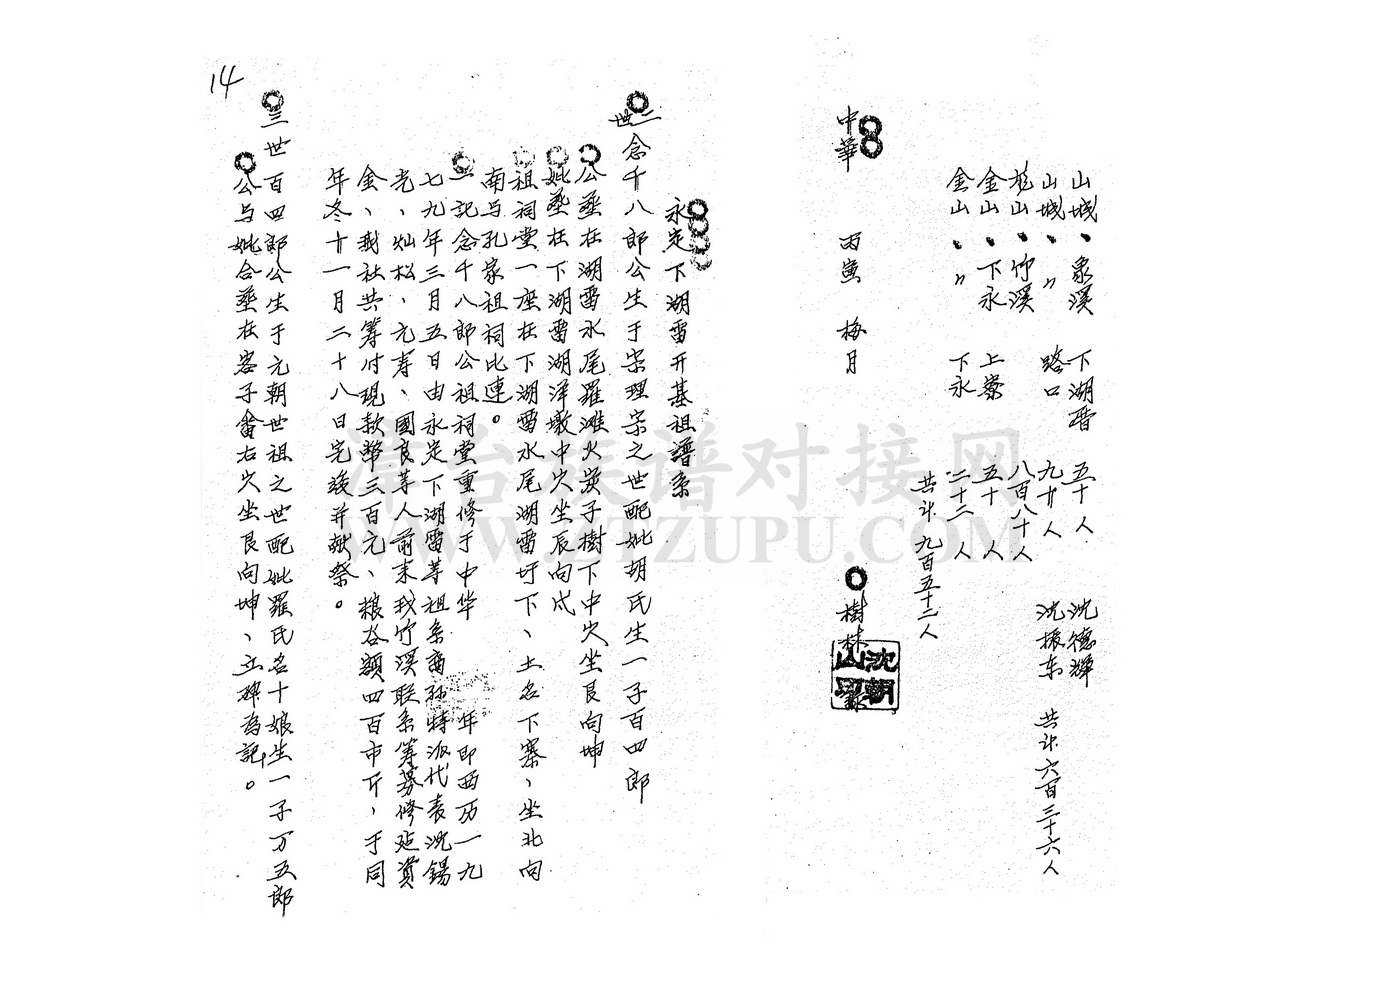 山城、象溪 下湖雷 五十人 沈德輝
山城、〃 路口 九十人 沈振东 共计六百三十六人
山、竹溪 八百八十人
金山、下永 上寮 五十人
金山、〃 下永 二十二人
共计九百五十二人
中華 丙寅 梅月 樹林
沈朝山印
永定下湖雷开基祖譜系
二世念千八郎公生于宋理宗之世配妣胡氏生一子百四郎
公葬在湖雷水尾羅滩火炭子樹下中穴坐艮向坤
妣葬在下湖雷湖洋墩中穴坐辰向戌
祖祠堂一座在下湖雷水尾湖雷圩下、土名下寨、坐北向
南与孔家祖祠比連。
一記念千八郎公祖祠堂重修于中华 年即西历一九
七九年三月五日由永定下湖雷等祖系裔孙特派代表沈錫
光、灿松、元寿、國良等人前来我竹溪联系筹募修建資
金、我社共筹付現款幣三百元、粮谷額四百市斤，于同
年冬十一月二十八日完竣并献祭。
三世百四郎公生于元朝世祖之世配妣羅氏名十娘生一子万五郎
公与妣合葬在窖子畲右穴坐艮向坤、立碑为記。
14
漳台族谱对接网
WWW.ZTZUPU.COM